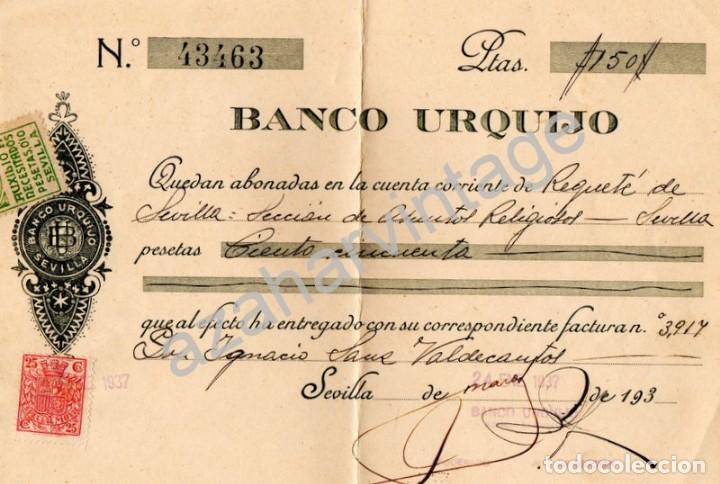 N.º 43463 Ptas. //150//
BANCO URQUIJO
Quedan abonadas en la cuenta corriente de Requeté de
Sevilla: Sección de Asuntos Religiosos — Sevilla
pesetas Ciento cincuenta
que al efecto ha entregado con su correspondiente factura n.º 3,917
Don Ignacio Sanz Valdecantos
Sevilla de marzo de 193
24 1937
BANCO URQUIJO
1937
SECRESTADOS
PESETAS 0,10
SEVILLA
BANCO URQUIJO
SEVILLA
25 C
C 25
azaharvintage
todocoleccion